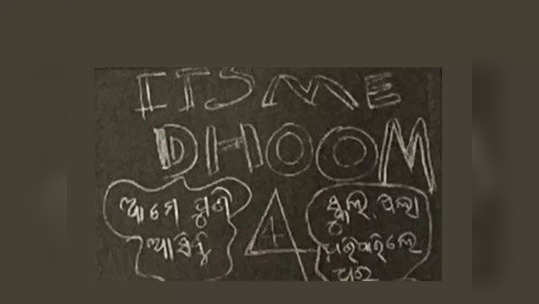 ITS ME
DHOOM
4
ଆମେ ପୁଣି
ଆସିବୁ
ଧରିପାରିଲେ
ଧର